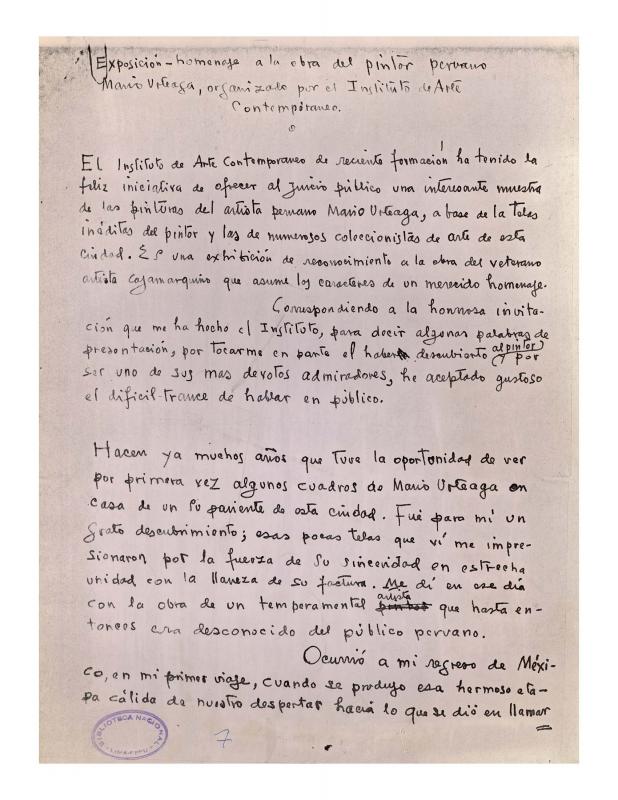 Exposición-homenaje a la obra del pintor peruano
Mario Urteaga, organizado por el Instituto de Arte
Contemporáneo.
El Instituto de Arte Contemporaneo de reciente formación ha tenido la
feliz iniciativa de ofrecer al juicio público una interesante muestra
de las pinturas del artista peruano Mario Urteaga, a base de la telas
inéditas del pintor y las de numerosos coleccionistas de arte de esta
ciudad. Es una exhibición de reconocimiento a la obra del veterano
artista cajamarquino que asume los caracteres de un merecido homenaje.
Correspondiendo a la honrosa invita-
ción que me ha hecho el Instituto, para decir algunas palabras de
presentación, por tocarme en parte el haber descubierto al pintor y por
ser uno de sus mas devotos admiradores, he aceptado gustoso
el dificil trance de hablar en público.
Hacen ya muchos años que tuve la oportunidad de ver
por primera vez algunos cuadros de Mario Urteaga en
casa de un su pariente de esta ciudad. Fué para mí un
grato descubrimiento; esas pocas telas que ví me impre-
sionaron por la fuerza de su sinceridad en estrecha
unidad con la llaneza de su factura. Me dí en ese día
con la obra de un temperamental artista pintor que hasta en-
tonces era desconocido del público peruano.
Ocurrió a mi regreso de Méxi-
co, en mi primer viaje, cuando se produjo esa hermosa eta-
pa cálida de nuestro despertar hacia lo que se dió en llamar
BIBLIOTECA NACIONAL
LIMA-PERU
7